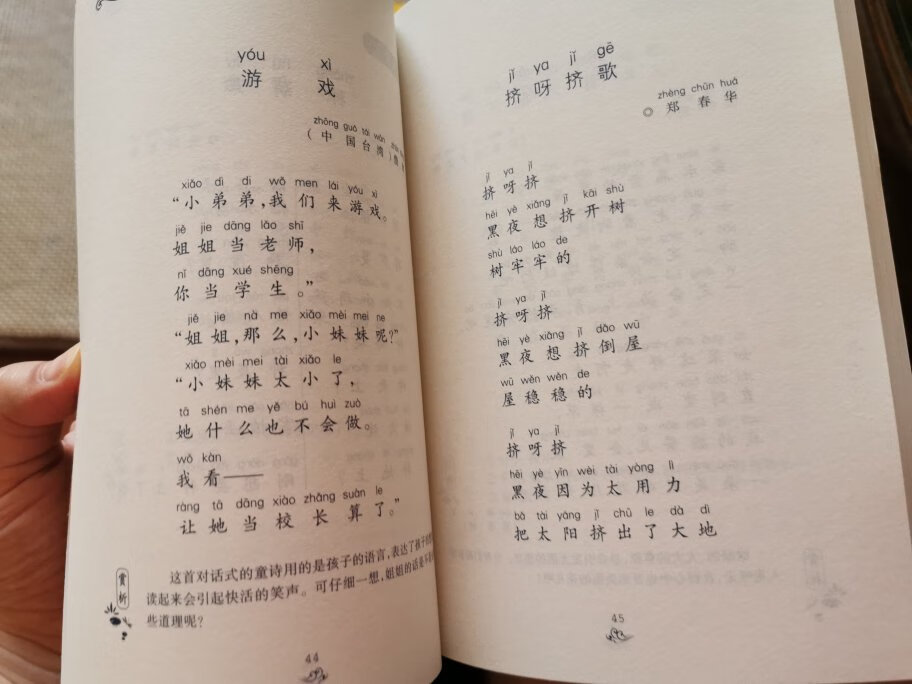 yóu xì
游戏
zhōng guó tái wān
(中国台湾)
xiǎo dì di wǒ men lái yóu xì
“小弟弟,我们来游戏。
jiě jie dāng lǎo shī
姐姐当老师,
nǐ dāng xué shēng
你当学生。”
jiě jie nà me xiǎo mèi mei ne
“姐姐,那么,小妹妹呢?”
xiǎo mèi mei tài xiǎo le
“小妹妹太小了,
tā shén me yě bú huì zuò
她什么也不会做。
wǒ kàn
我看——
ràng tā dāng xiào zhǎng suàn le
让她当校长算了。”
赏析
这首对话式的童诗用的是孩子的语言,表达了孩子的
读起来会引起快活的笑声。可仔细一想,姐姐的话是不
些道理呢?
44
jǐ ya jǐ gē
挤呀挤歌
zhèng chūn huá
◎郑春华
jǐ ya jǐ
挤呀挤
hēi yè xiǎng jǐ kāi shù
黑夜想挤开树
shù láo láo de
树牢牢的
jǐ ya jǐ
挤呀挤
hēi yè xiǎng jǐ dǎo wū
黑夜想挤倒屋
wū wěn wěn de
屋稳稳的
jǐ ya jǐ
挤呀挤
hēi yè yīn wèi tài yòng lì
黑夜因为太用力
bǎ tài yáng jǐ chū le dà dì
把太阳挤出了大地
45